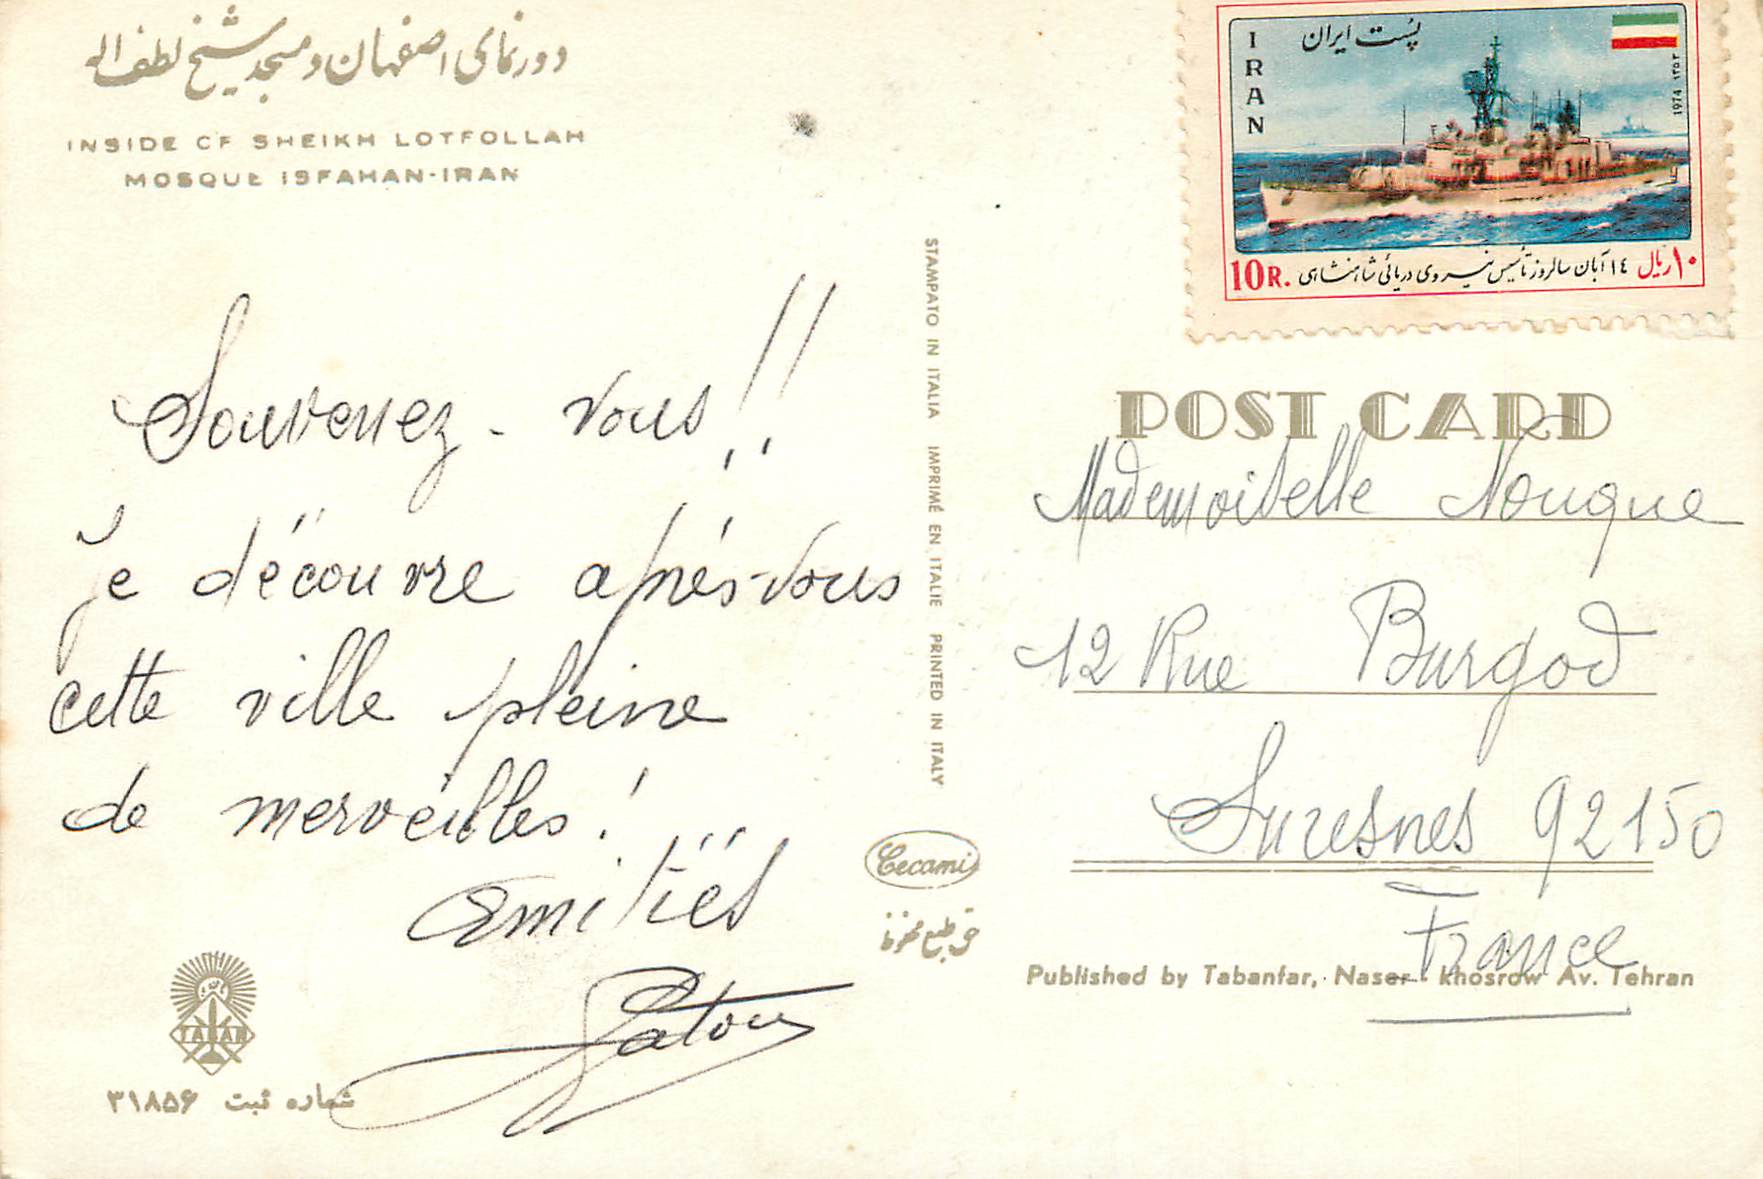 دورنمای اصفهان و مسجد شیخ لطف اله
INSIDE OF SHEIKH LOTFOLLAH
MOSQUE ISFAHAN-IRAN
Souvenez-vous!!
Je découvre après-vous
cette ville pleine
de merveilles!
Amitiés
شماره ثبت ۳۱۸۵۶
TABAN
STAMPATO IN ITALIA IMPRIMÉ EN ITALIE PRINTED IN ITALY
Cecami
حق طبع محفوظ
IRAN
پست ایران
1974 ۱۳۵۳
10R. ۱۴ آبان سالروز تأسیس نیروی دریائی شاهنشاهی ۱۰ ریال
POST CARD
Mademoiselle Nouque
12 Rue Burgod
Suresnes 92150
France
Published by Tabanfar, Naser-khosrow Av. Tehran